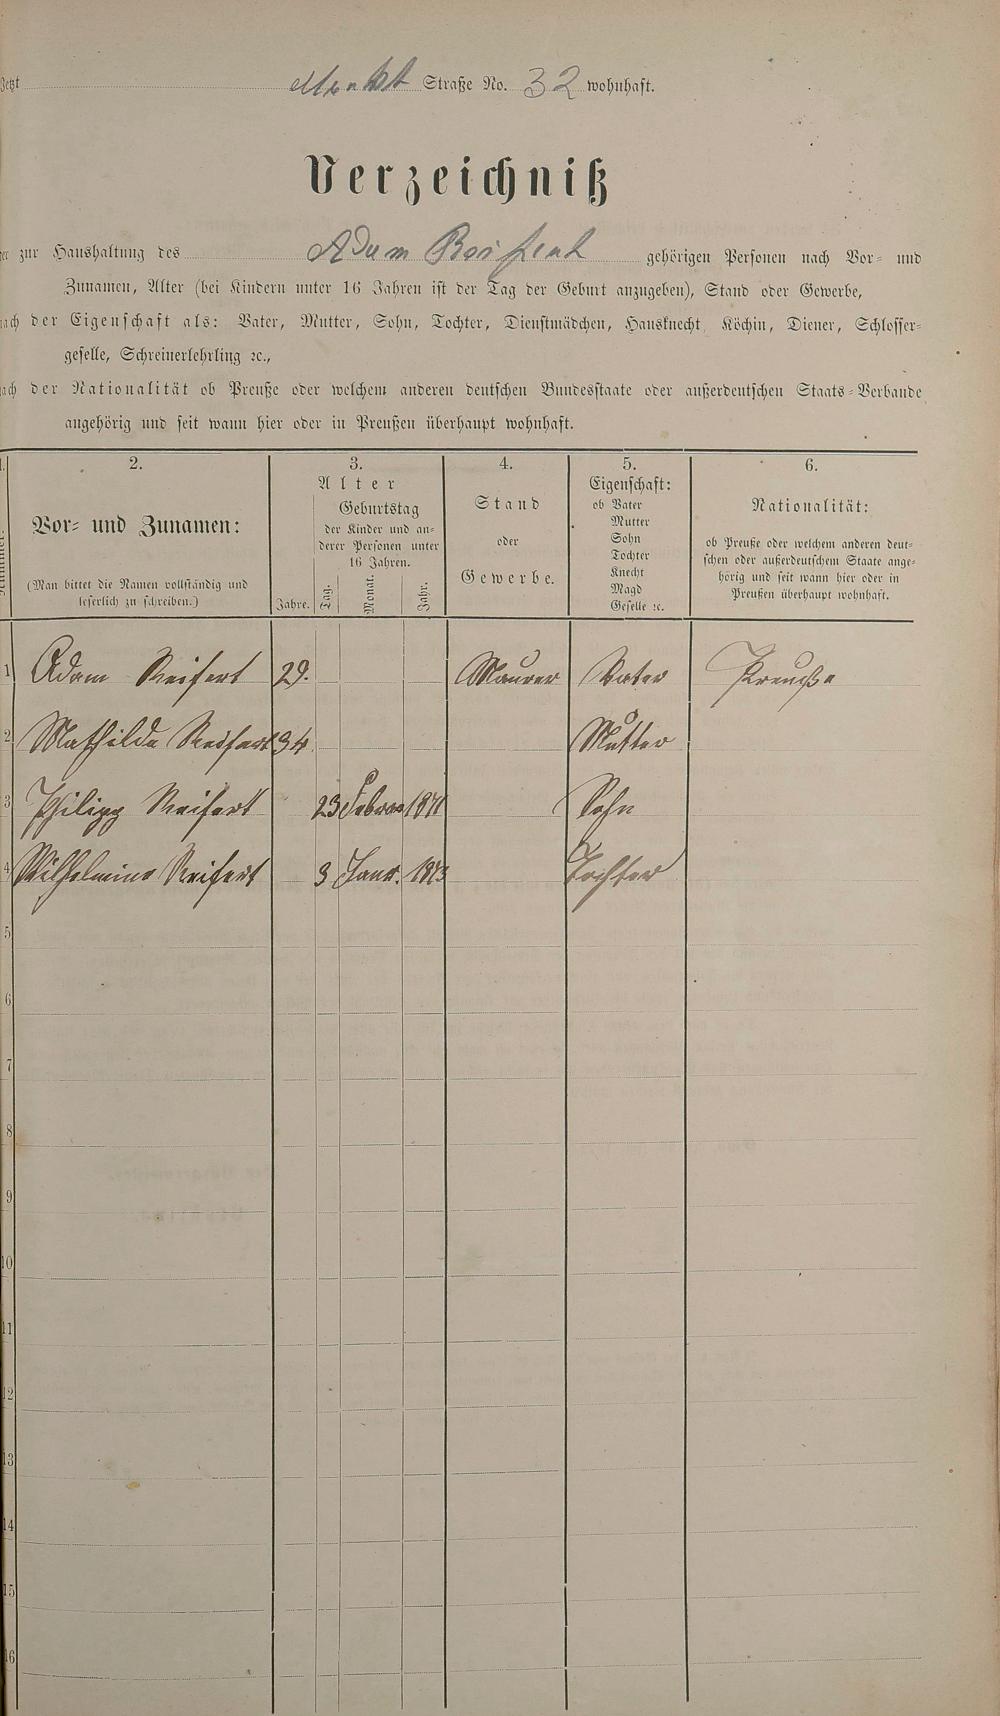 Jetzt Markt Straße No. 32 wohnhaft.
Verzeichniß
der zur Haushaltung des Adam Reifert gehörigen Personen nach Vor- und
Zunamen, Alter (bei Kindern unter 16 Jahren ist der Tag der Geburt anzugeben), Stand oder Gewerbe,
nach der Eigenschaft als: Vater, Mutter, Sohn, Tochter, Dienstmädchen, Hausknecht, Köchin, Diener, Schlosser-
geselle, Schreinerlehrling ꝛc.,
nach der Nationalität ob Preuße oder welchem anderen deutschen Bundesstaate oder außerdeutschen Staats-Verbande
angehörig und seit wann hier oder in Preußen überhaupt wohnhaft.
1.
Nummer.
2.
Vor- und Zunamen:
(Man bittet die Namen vollständig und
leserlich zu schreiben.)
3.
Alter
Jahre.
Geburtstag
der Kinder und an-
derer Personen unter
16 Jahren.
Tag.
Monat.
Jahr.
4.
Stand
oder
Gewerbe.
5.
Eigenschaft:
ob Vater
Mutter
Sohn
Tochter
Knecht
Magd
Geselle ꝛc.
6.
Nationalität:
ob Preuße oder welchem anderen deut-
schen oder außerdeutschem Staate ange-
hörig und seit wann hier oder in
Preußen überhaupt wohnhaft.
1 Adam Reifert 29. Maurer Vater Preuße
2 Mathilde Reifert 34. Mutter
3 Philipp Reifert 23 Februar 1871 Sohn
4 Wilhelmine Reifert 3 Janr. 1873 Tochter
5
6
7
8
9
10
11
12
13
14
15
16